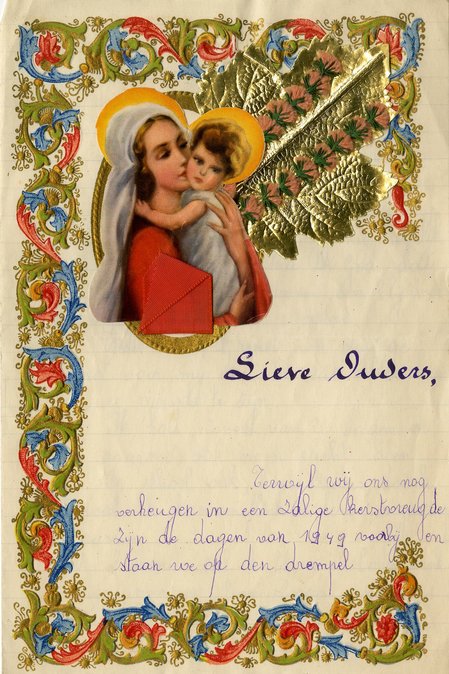 Lieve Ouders,
Terwijl wij ons nog
verheugen in een zalige kerstvreugde
zijn de dagen van 1949 voorbij en
staan we op den drempel